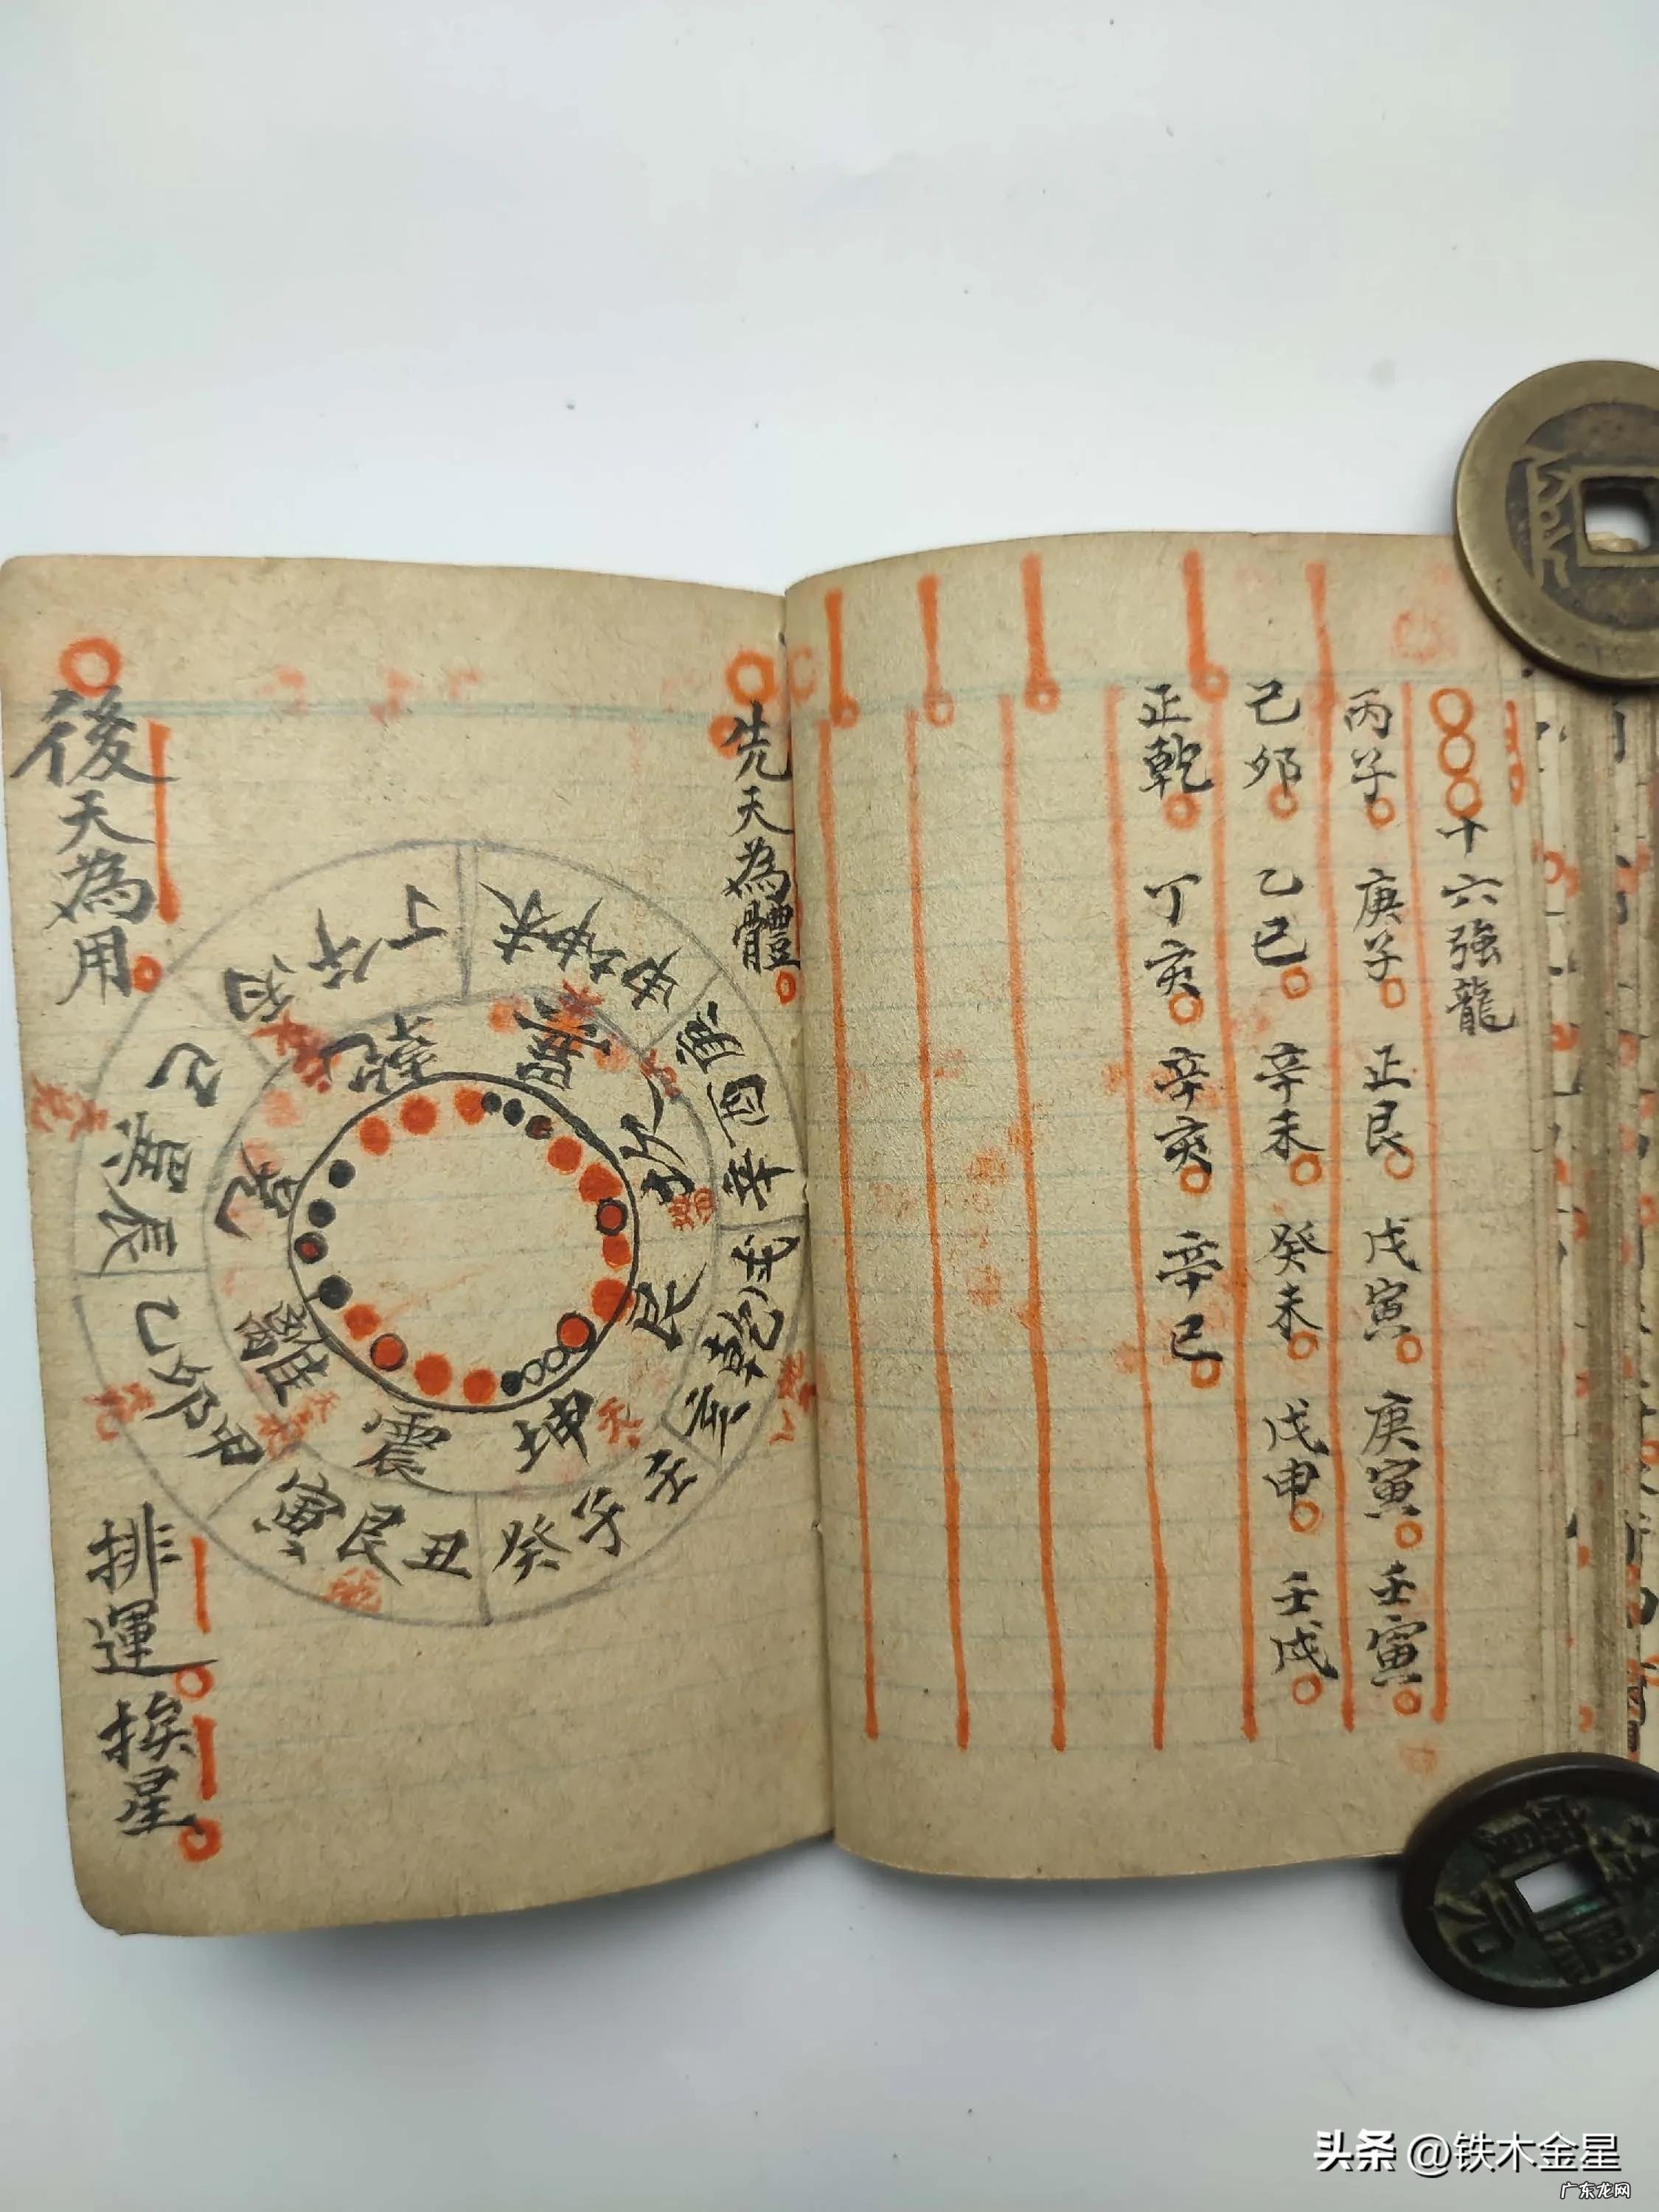 十六強龍
丙子 庚子 正艮 戊寅 庚寅 壬寅
己卯 乙巳 辛未 癸未 戊申 壬戌
正乾 丁亥 辛亥 辛巳
先天為體
後天為用
排運 挨星
乾
巽
坎
艮
坤
震
離
兌
丁
午
丙
未
坤
申
庚
酉
辛
戌
乾
亥
壬
子
癸
丑
艮
寅
甲
卯
乙
辰
巽
巳
头条 @铁木金星
广东龙网